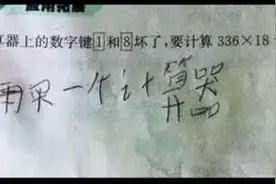 应用拓展
算器上的数字键1和8坏了,要计算 336×18
用另一个计算器